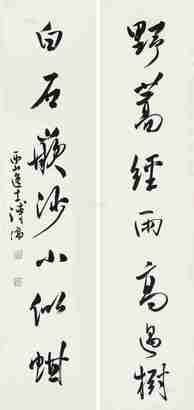 野蒿經雨高過樹
白石嵌沙小似蚶
西山逸士溥儒